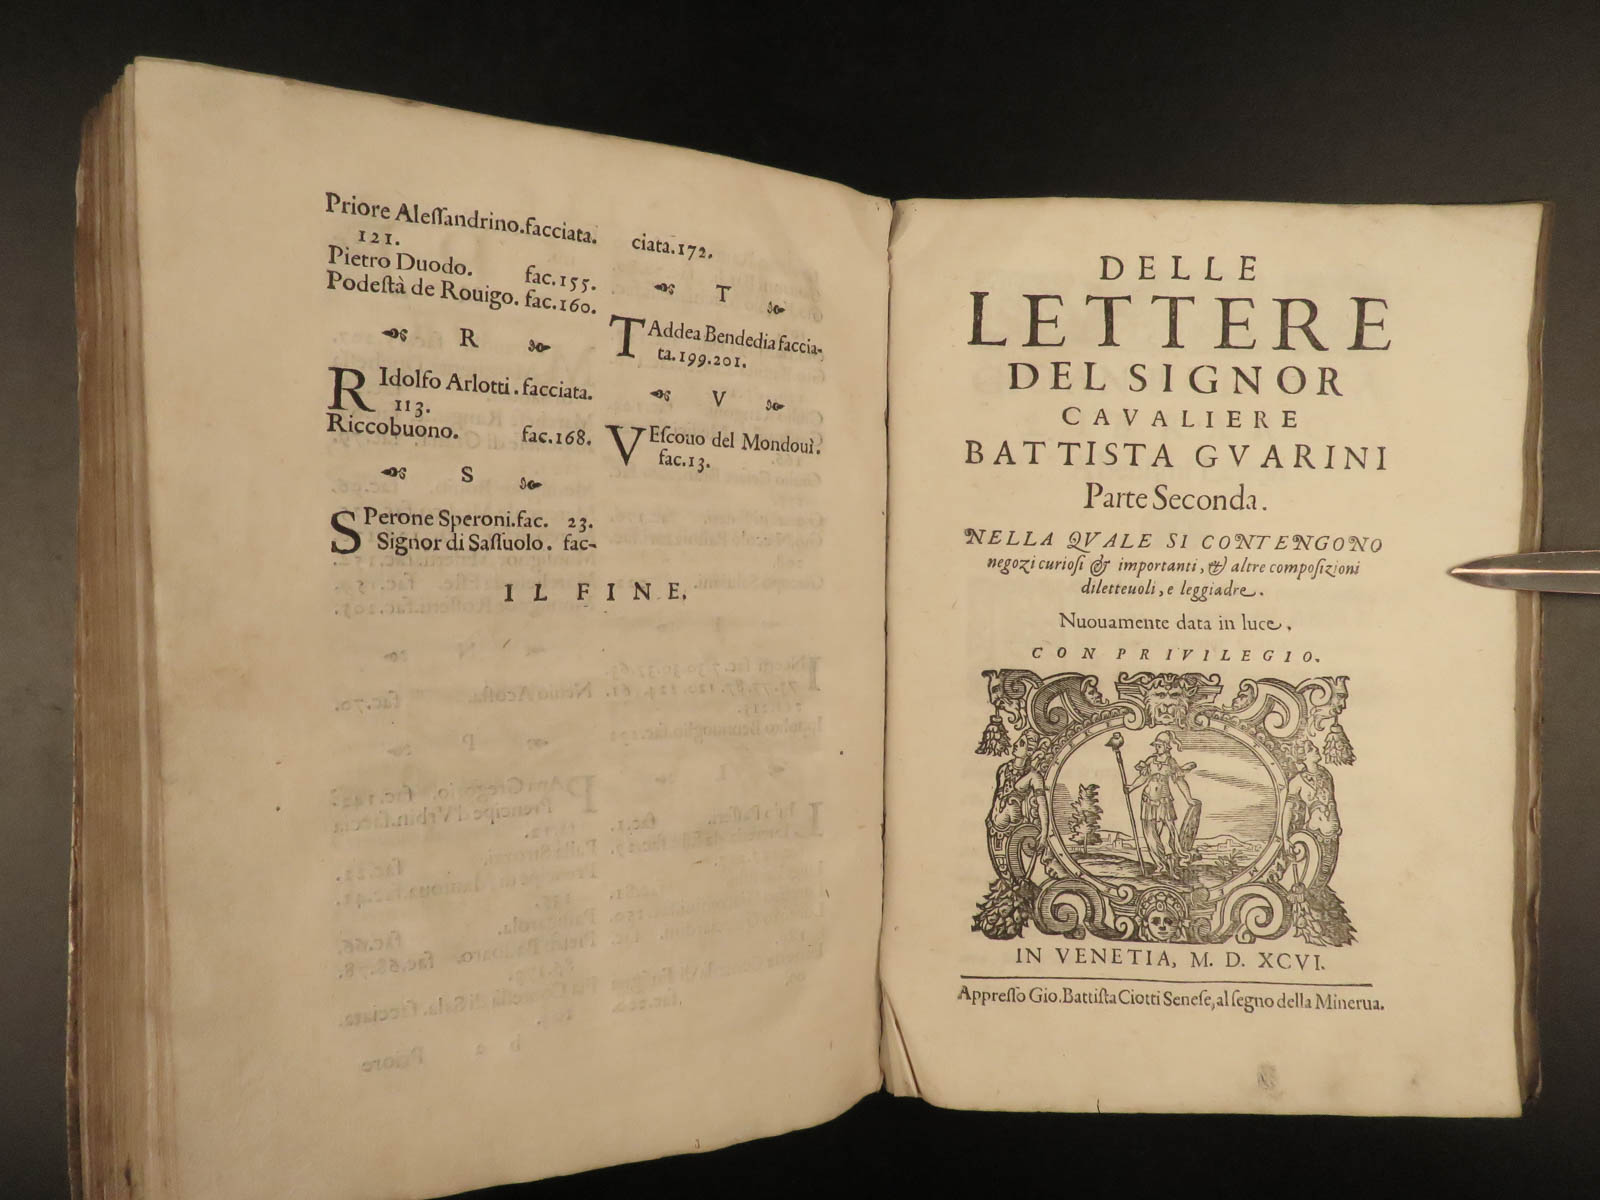 Priore Alessandrino.facciata.
121.
Pietro Duodo. fac.155.
Podestà de Rouigo. fac.160.
R
RIdolfo Arlotti.facciata.
113.
Riccobuono. fac.168.
S
SPerone Speroni.fac. 23.
Signor di Sassuolo. fac-
ciata.172.
T
TAddea Bendedia faccia-
ta.199.201.
V
VEscouo del Mondouì.
fac.13.
IL FINE.
DELLE
LETTERE
DEL SIGNOR
CAVALIERE
BATTISTA GVARINI
Parte Seconda.
NELLA QVALE SI CONTENGONO
negozi curiosi & importanti, & altre composizioni
diletteuoli, e leggiadre.
Nuouamente data in luce.
CON PRIVILEGIO.
IN VENETIA, M. D. XCVI.
Appresso Gio. Battista Ciotti Senese, al segno della Minerua.